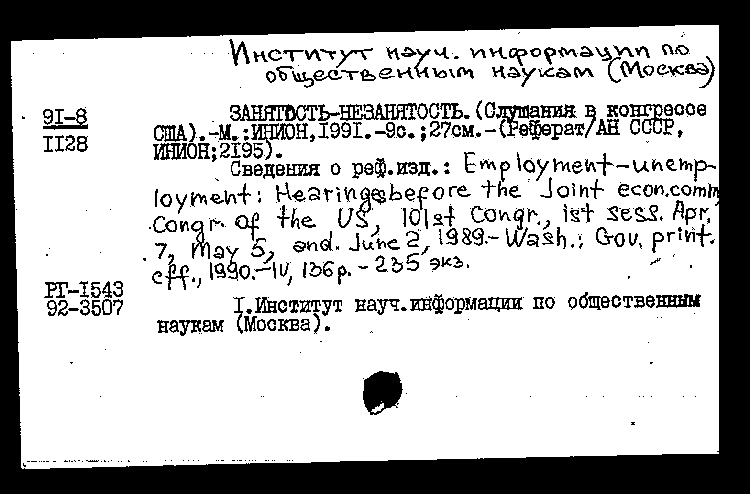 Институт науч. информации по
общественным наукам (Москва)
91-8
1128
ЗАНЯТОСТЬ-НЕЗАНЯТОСТЬ. (Слушания в конгрессе
США).-М.:ИНИОН,1991.-9с.;27см.-(Реферат/АН СССР,
ИНИОН;2195).
Сведения о реф.изд.: Employment-unemp-
loyment: Hearings before the Joint econ.comm.
Congr. of the US, 101st Congr., 1st sess. Apr.
7, May 5, and. June 2, 1989.-Wash.: Gov. print.
off., 1990.-IV, 136p. - 235 экз.
РГ-1543
92-3507
I.Институт науч.информации по общественным
наукам (Москва).